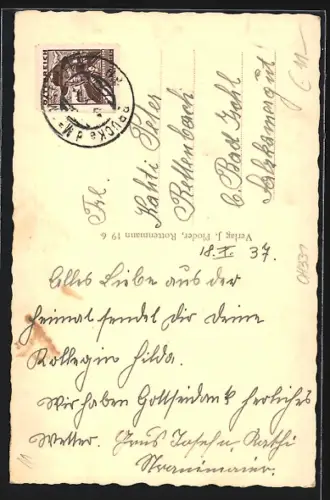 ÖSTERREICH
BRUCK a. d. M
Frl.
Kathi Peter
Rettenbach
b. Bad Ischl
Salzkammergut
Verlag J. Ploder, Rottenmann 19 6
18. X. 37.
Alles Liebe aus der
Heimat sendet Dir Deine
Kollegin Hilda.
Wir haben Gottseidank herrliches
Wetter. Josef u. Kathi